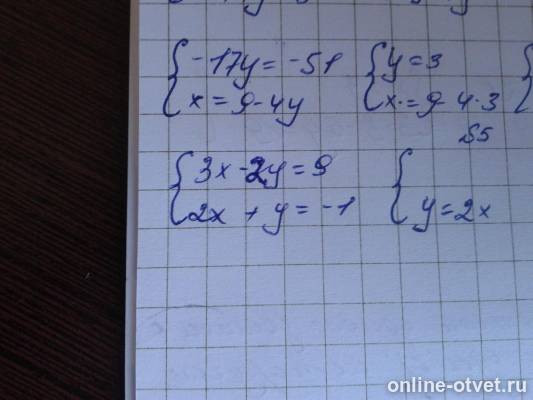 -17y = -51 y = 3
x = 9 - 4y x = 9 - 4·3
3x - 2y = 9
2x + y = -1 y = 2x
online-otvet.ru